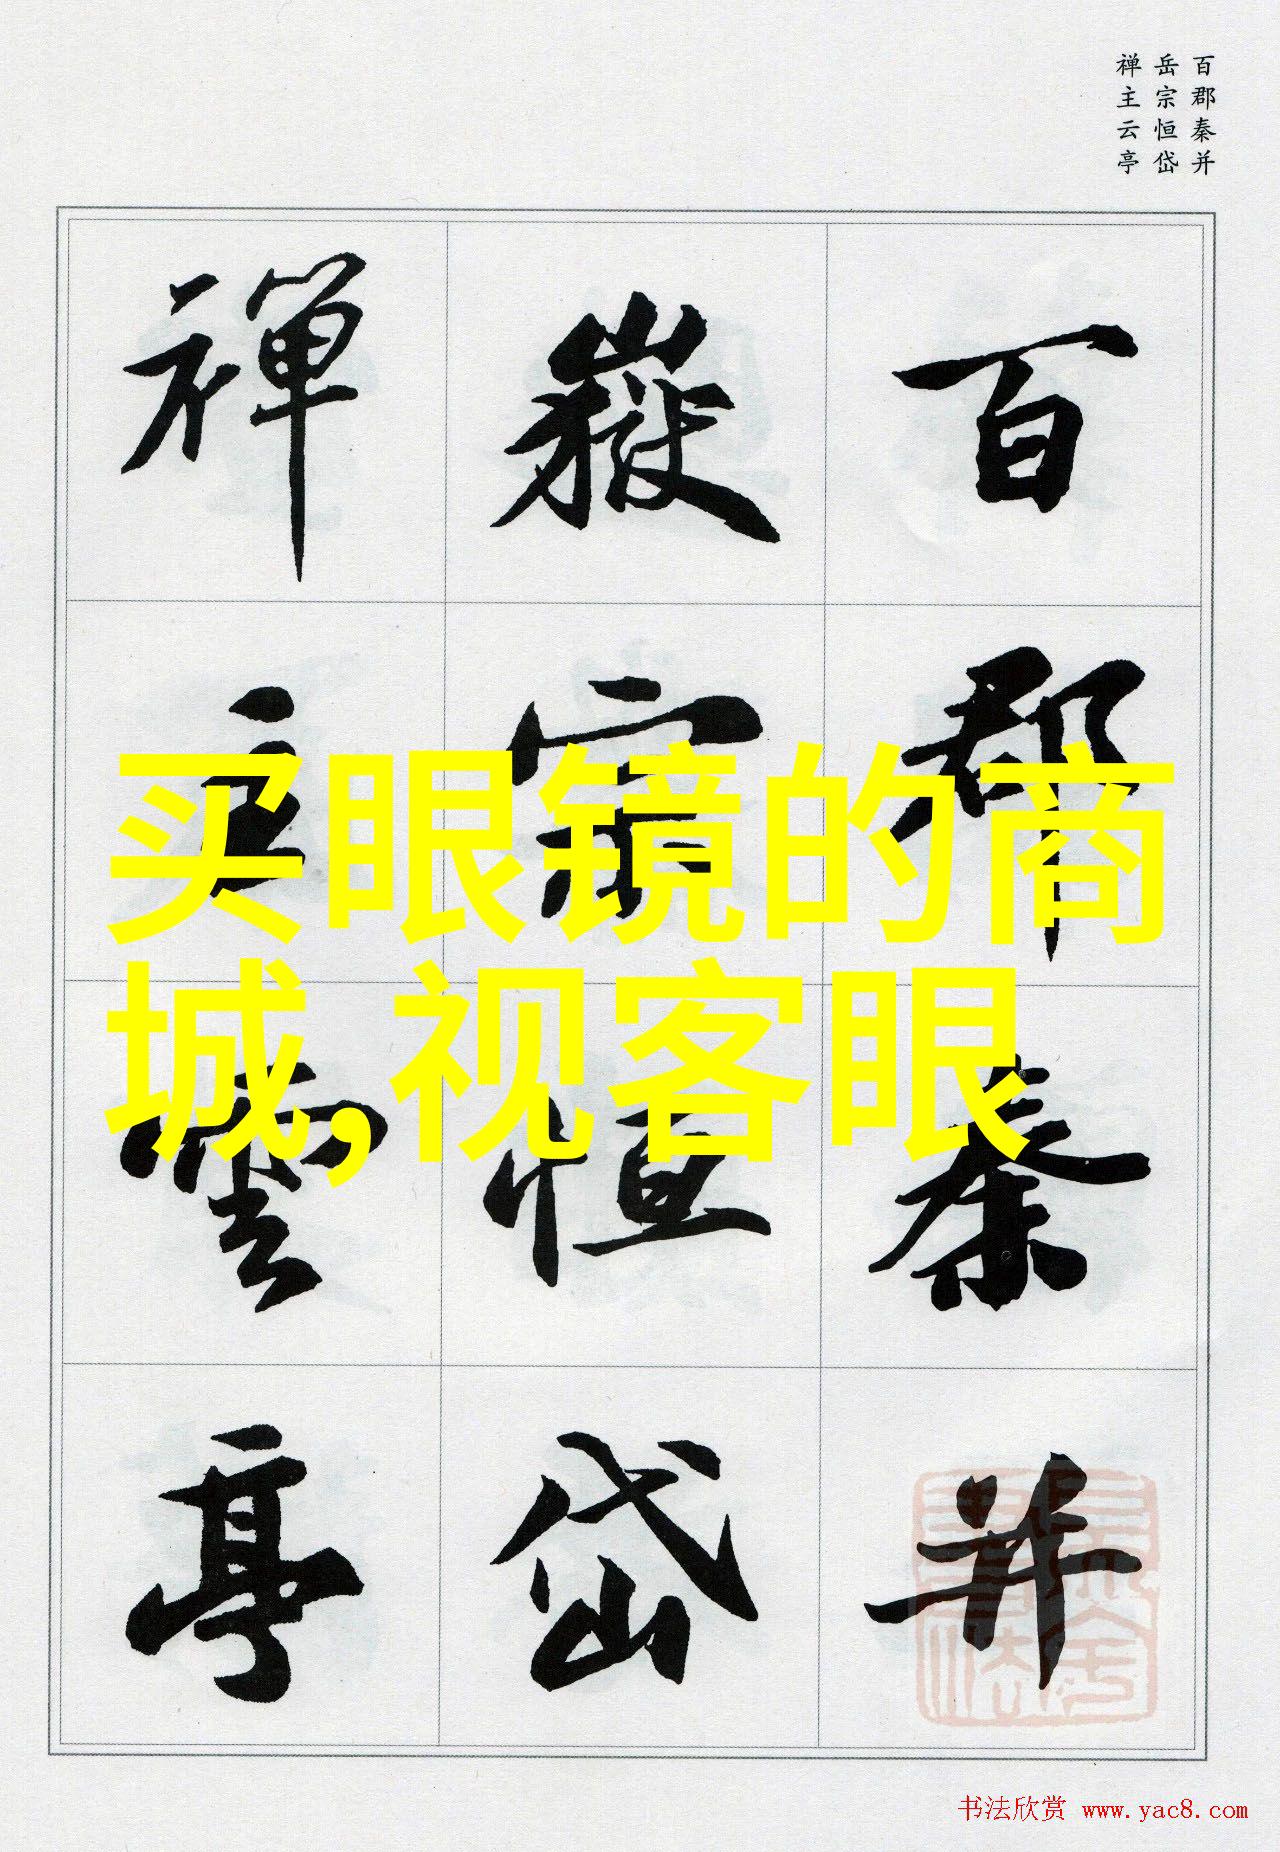 百郡秦并
岳宗恒岱
禅主云亭
百郡秦并
嶽宗恒岱
禅主雲亭
买眼镜的商
城,视客眼
书法欣赏 www.yac8.com